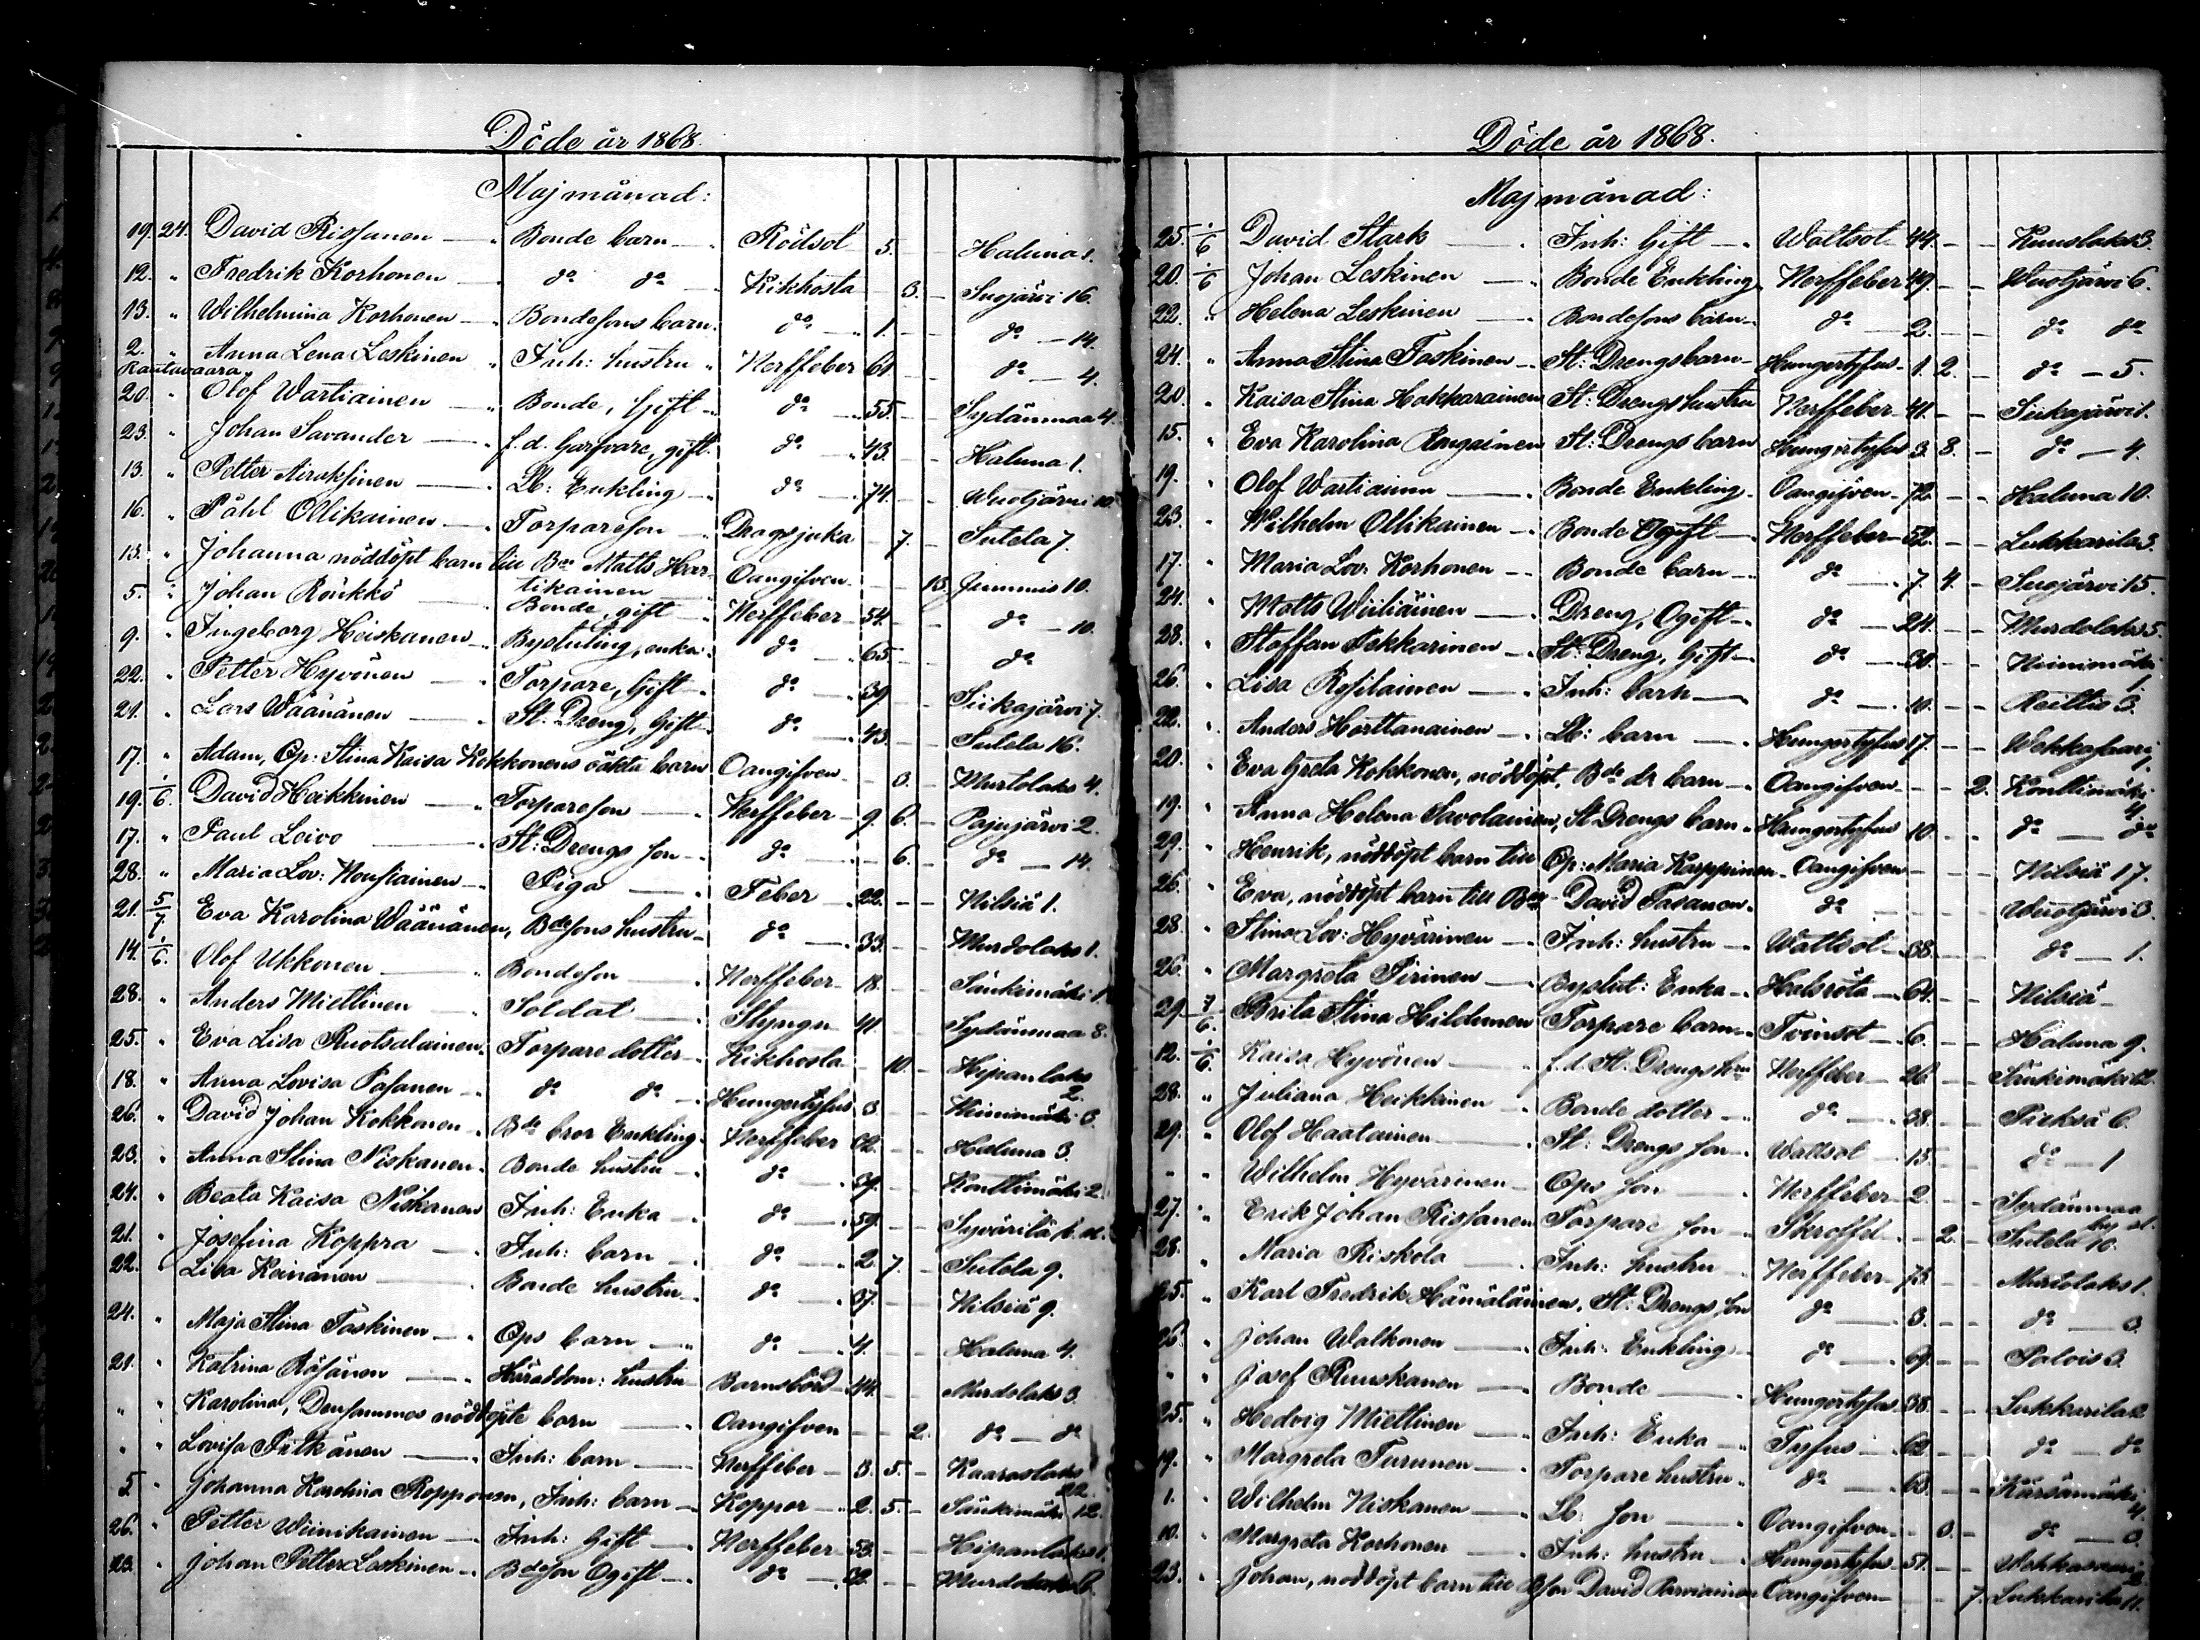 Döde år 1868.
Maj månad:
19. 24. David Rissanen Bonde barn Rödsot 5. Haluna 1.
12. " Fredrik Korhonen do do Kikhosta 3. Suojärvi 16.
13. " Wilhelmina Korhonen Bondesons barn do 1. do 14.
2. " Anna Lena Leskinen Inh: hustru Nerffeber 61 do 4.
Rautavaara
20. " Olof Wartiainen Bonde, Gift do 55. Sydänmaa 4.
23. " Johan Savander f.d. Garfvare, gift do 43. Haluna 1.
13. " Petter Airaksinen Lb: Enkling do 74. Wuotjärvi 10.
16. " Påhl Ollikainen Torpareson Dragsjuka 7. Sutela 7.
13. " Johanna nöddöpt barn till Bon Matts Har- Oangifven 13. Jummis 10.
tikainen
5. " Johan Rönkkö Bonde, gift Nerffeber 54. do 10.
9. " Ingeborg Heiskanen Bysluting, enka do 65. do
22. " Petter Hyvönen Torpare, Gift do 39 Siikajärvi 7.
21. " Lars Wäänänen St. Dreng, Gift do 43. Sutela 16.
17. " Adam, Qp: Stina Kaisa Kokkonens oäkta barn Oangifven 0. Murtolaks 4.
19. 1/6. David Heikkinen Torpareson Nerffeber 9. 6. Pajujärvi 2.
17. " Paul Leivo St: Drengs son do 6. do 14.
28. " Maria Lov: Nousiainen Piga Feber 22. Nilsiä 1.
21. 5/7 Eva Karolina Wäänänen, Bdesons hustru do 33. Murdolaks 1.
14. 1/6. Olof Ukkonen Bondeson Nerffeber 18. Säukimäki 1.
28. " Anders Miettinen Soldat Styngn 41 Sydänmaa 8.
25. " Eva Lisa Ruotsalainen Torpare dotter Kikhosta 10. Kipanlaks
2.
18. " Anna Lovisa Pasanen do do Hungertyfus 3. Heinimäki 3.
26. " David Johan Kokkonen Bde bror Enkling Nerffeber 62. Haluna 3.
23. " Anna Stina Niskanen Bonde hustru do 39. Konttimäki 2.
24. " Beata Kaisa Niskanen Inh: Enka do 59. Syvärilä
21. " Josefina Koppra Inh: barn do 2. 7. Sutela 9.
22. Lisa Keinänen Bonde hustru do 37. Nilsiä 9.
24. " Maja Stina Taskinen Qps barn do 4. Haluna 4.
21. " Katrina Räsänen Häraddom: hustru Barnsbörd 44. Murdolaks 3.
" " Karolina, Densammes nöddöpte barn Oangifven 2. do do
" " Lovisa Pitkänen Inh: barn Nerffeber 3. 5. Kaaraslaks
22.
5 " Johanna Karolina Ropponen, Inh: barn Koppor 2. 5. Säukimäki 12.
26. " Petter Wiinikainen Inh: Gift Nerffeber 53. Kipanlaks 1.
23. " Johan Petter Leskinen Bdeson Ogift do 32. Murdolaks 6.
Döde år 1868.
Maj månad:
25. 1/6 David Stark Inh: Gift Wattsot 44. Kuuslaks 3.
20. 1/6 Johan Leskinen Bonde Enkling Nerffeber 49. Wuotjärvi 6.
22. " Helena Leskinen Bondesons barn do 2. do do
24. " Anna Stina Taskinen St: Drengsbarn Hungertyfus 1. 2. do 5.
20. " Kaisa Stina Hakkarainen St: Drengs hustru Nerffeber 41. Siikajärvi 1.
15. " Eva Karolina Rongainen St: Drengs barn Hungertyfus 3. 8. do 4.
19. " Olof Wartiainen Bonde Enkling Oangifven 72. Haluna 10.
23. " Wilhelm Ollikainen Bonde Ogift Nerffeber 52. Lukkarila 3.
17. " Maria Lov: Korhonen Bonde barn do 7. 4. Suojärvi 15.
24. " Matts Wiiliäinen Dreng, Ogift do 24. Murdolaks 5.
28. " Staffan Pekkarinen St: Dreng, Gift do 30. Heinimäki
1.
26. " Lisa Rysilainen Inh: barn do 10. Reittis 3.
22. " Anders Horttanainen Lb: barn Hungertyfus 17. Wehkasaari
1.
20. " Eva Greta Kokkonen, nöddöpt, Bde dr barn Oangifven 2. Konttimäki
4.
19. " Anna Helena Savolainen, St Drengs barn Hungertyfus 10. do do
29. " Henrik, nöddöpt barn till Qp: Maria Karppinen Oangifven Nilsiä 17.
26. " Eva, nöddöpt barn till Bon David Tasanen do Wuotjärvi 3.
28. " Stina Lov: Hyvärinen Inh: hustru Wattsot 38. do 1.
26. " Margreta Pirinen Byslut: Enka Halsröta 64. Nilsiä
29. 7/6. Brita Stina Hildunen Torpare barn Tvinsot 6. Haluna 9.
12. 1/6. Kaisa Hyvönen f.d. St. Drengs hru Nerffeber 26. Säukimäki 12.
28. " Juliana Heikkinen Bonde dotter do 38. Pieksä 6.
29. " Olof Haatainen St: Drengs son Wattsot 15. do 1
" " Wilhelm Hyvärinen Qps son Nerffeber 2. Sydänmaa
27. " Erik Johan Rissanen Torpare son Skroffel 2. Sutela 10.
28. " Maria Riskola Inh: hustru Nerffeber 75. Murdolaks 1.
25. " Karl Fredrik Hämäläinen, St: Drengs son do 3. do 3.
26. " Johan Walkonen Inh: Enkling do 69. Palois 3.
" " Josef Ruuskanen Bonde Hungertyfus 38. Lukkarila 2
25. " Hedvig Miettinen Inh: Enka Tyfus 62. do do
19. " Margreta Turunen Torpare hustru do 63. Kärsämäki
4.
1. " Wilhelm Niskanen Lb. son Oangifven 0. do 0.
10. " Margreta Korhonen Inh: hustru Hungertyfus 51. Wehkasaari
2.
23. " Johan, nöddöpt barn till Bson David Parviainen Oangifven 7. Lukkarila 11.